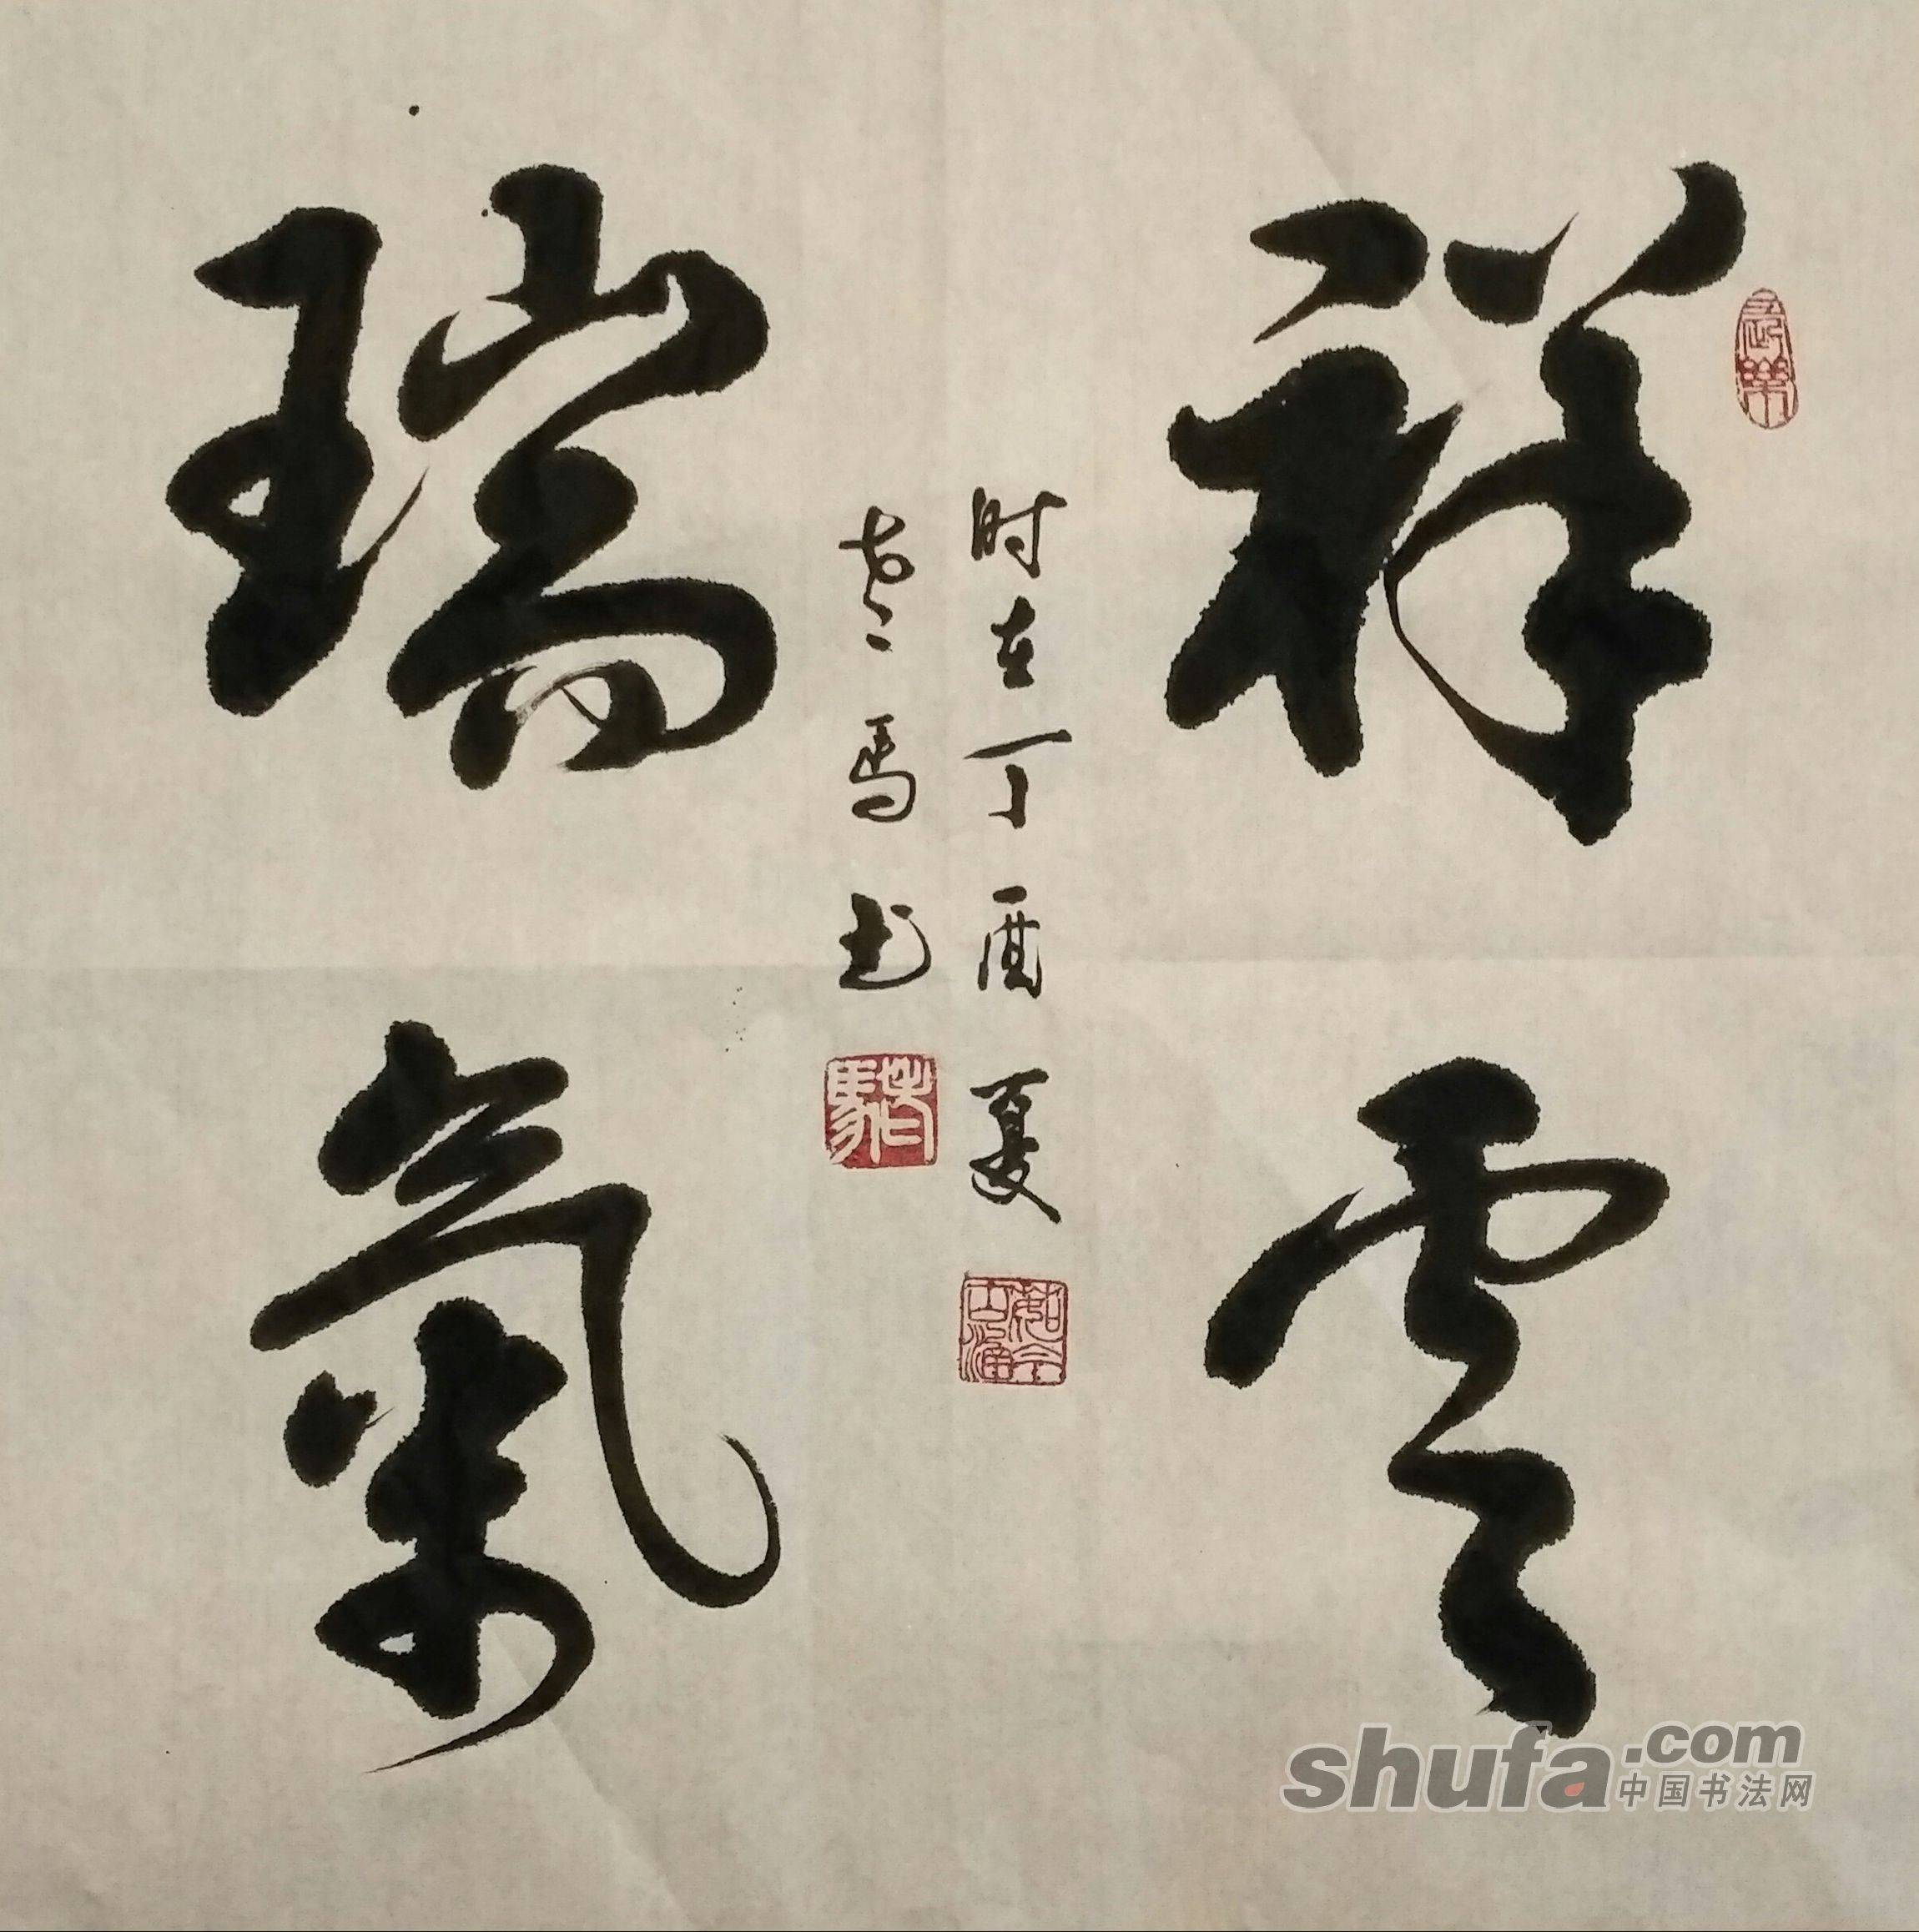 祥雲
瑞氣
时在丁酉夏
老馬书
shufa.com
中国书法网